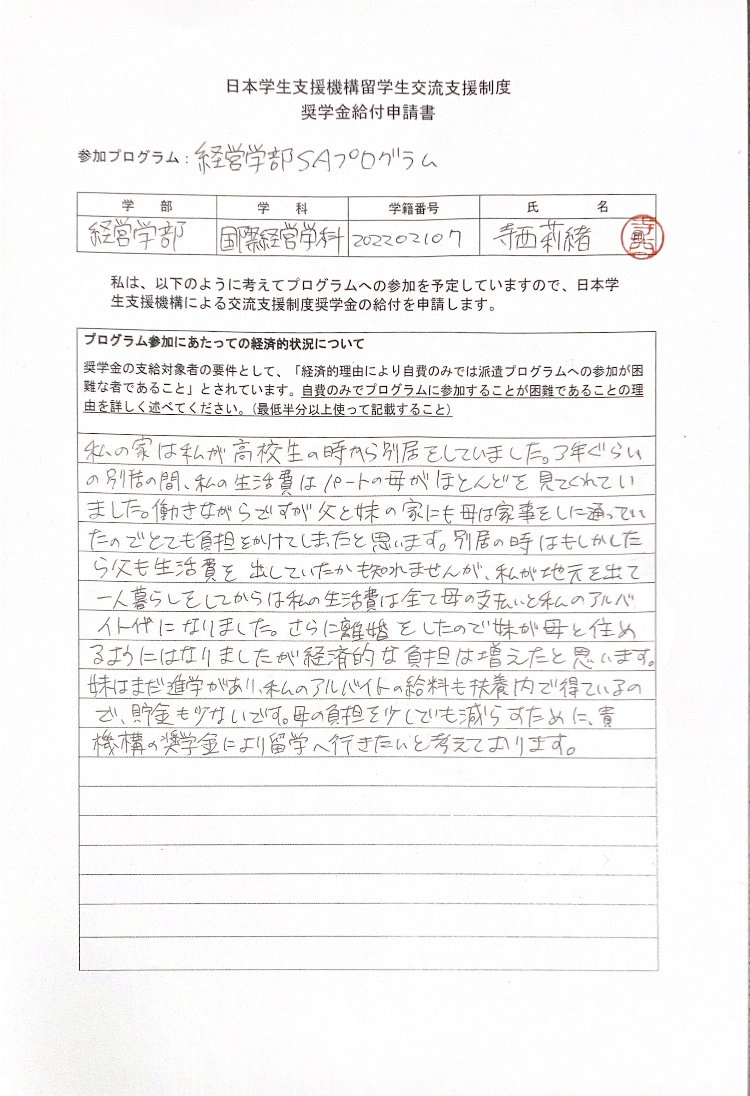 日本学生支援機構留学生交流支援制度
奨学金給付申請書
参加プログラム：経営学部SAプログラム
学部 学科 学籍番号 氏名
経営学部 国際経営学科 202202107 寺西莉緒
私は、以下のように考えてプログラムへの参加を予定していますので、日本学
生支援機構による交流支援制度奨学金の給付を申請します。
プログラム参加にあたっての経済的状況について
奨学金の支給対象者の要件として、「経済的理由により自費のみでは派遣プログラムへの参加が困
難な者であること」とされています。自費のみでプログラムに参加することが困難であることの理
由を詳しく述べてください。（最低半分以上使って記載すること）
私の家は私が高校生の時から別居をしていました。3年ぐらい
の別居の間、私の生活費はパートの母がほとんどを見てくれてい
ました。働きながらですが父と妹の家にも母は家事をしに通ってい
たのでとても負担をかけてしまったと思います。別居の時はもしかした
ら父も生活費を出していたかも知れませんが、私が地元を出て
一人暮らしをしてからは私の生活費は全て母の支払いと私のアルバ
イト代になりました。さらに離婚をしたので妹が母と住め
るようにはなりましたが経済的な負担は増えたと思います。
妹はまだ進学があり、私のアルバイトの給料も扶養内で得ているの
で、貯金も少ないです。母の負担を少しでも減らすために、貴
機構の奨学金により留学へ行きたいと考えております。